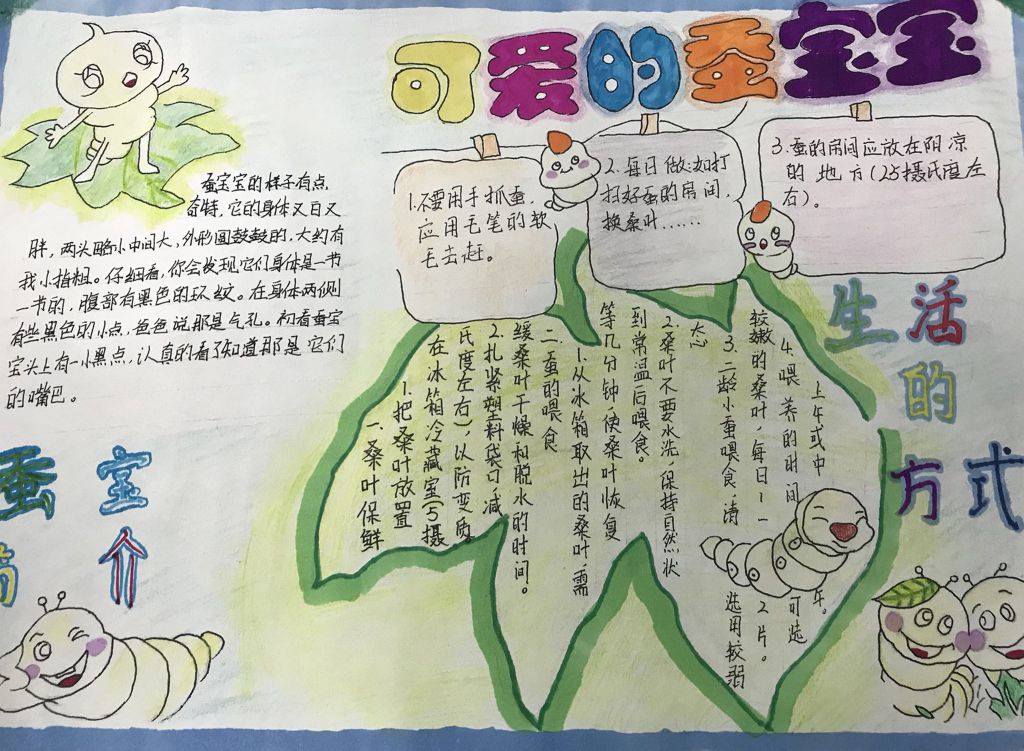 可爱的蚕宝宝
蚕宝宝的样子有点
奇特,它的身体又白又
胖,两头略小中间大,外形圆鼓鼓的,大约有
我小指粗。仔细看,你会发现它们身体是一节
一节的,腹部有黑色的环纹。在身体两侧
有些黑色的小点,爸爸说那是气孔。初看蚕宝
宝头上有一小黑点,认真的看了知道那是它们
的嘴巴。
1.不要用手抓蚕,
应用毛笔的软
毛去赶。
2.每日做:如打
扫好蚕的房间,
换桑叶……
3.蚕的房间应放在阴凉
的地方(25摄氏度左
右)。
一.桑叶保鲜
1.把桑叶放置
在冰箱冷藏室(5摄
氏度左右),以防变质
2.扎紧塑料袋口,减
缓桑叶干燥和脱水的时间。
二.蚕的喂食
1.从冰箱取出的桑叶,需
等几分钟,使桑叶恢复
到常温后喂食。
2.桑叶不要水洗,保持自然状
态
3.二龄小蚕喂食,清选用较弱
较嫩的桑叶,每日1-2片。
4.喂养的时间可选
上午或中午。
生活
的
方式
蚕宝
简介